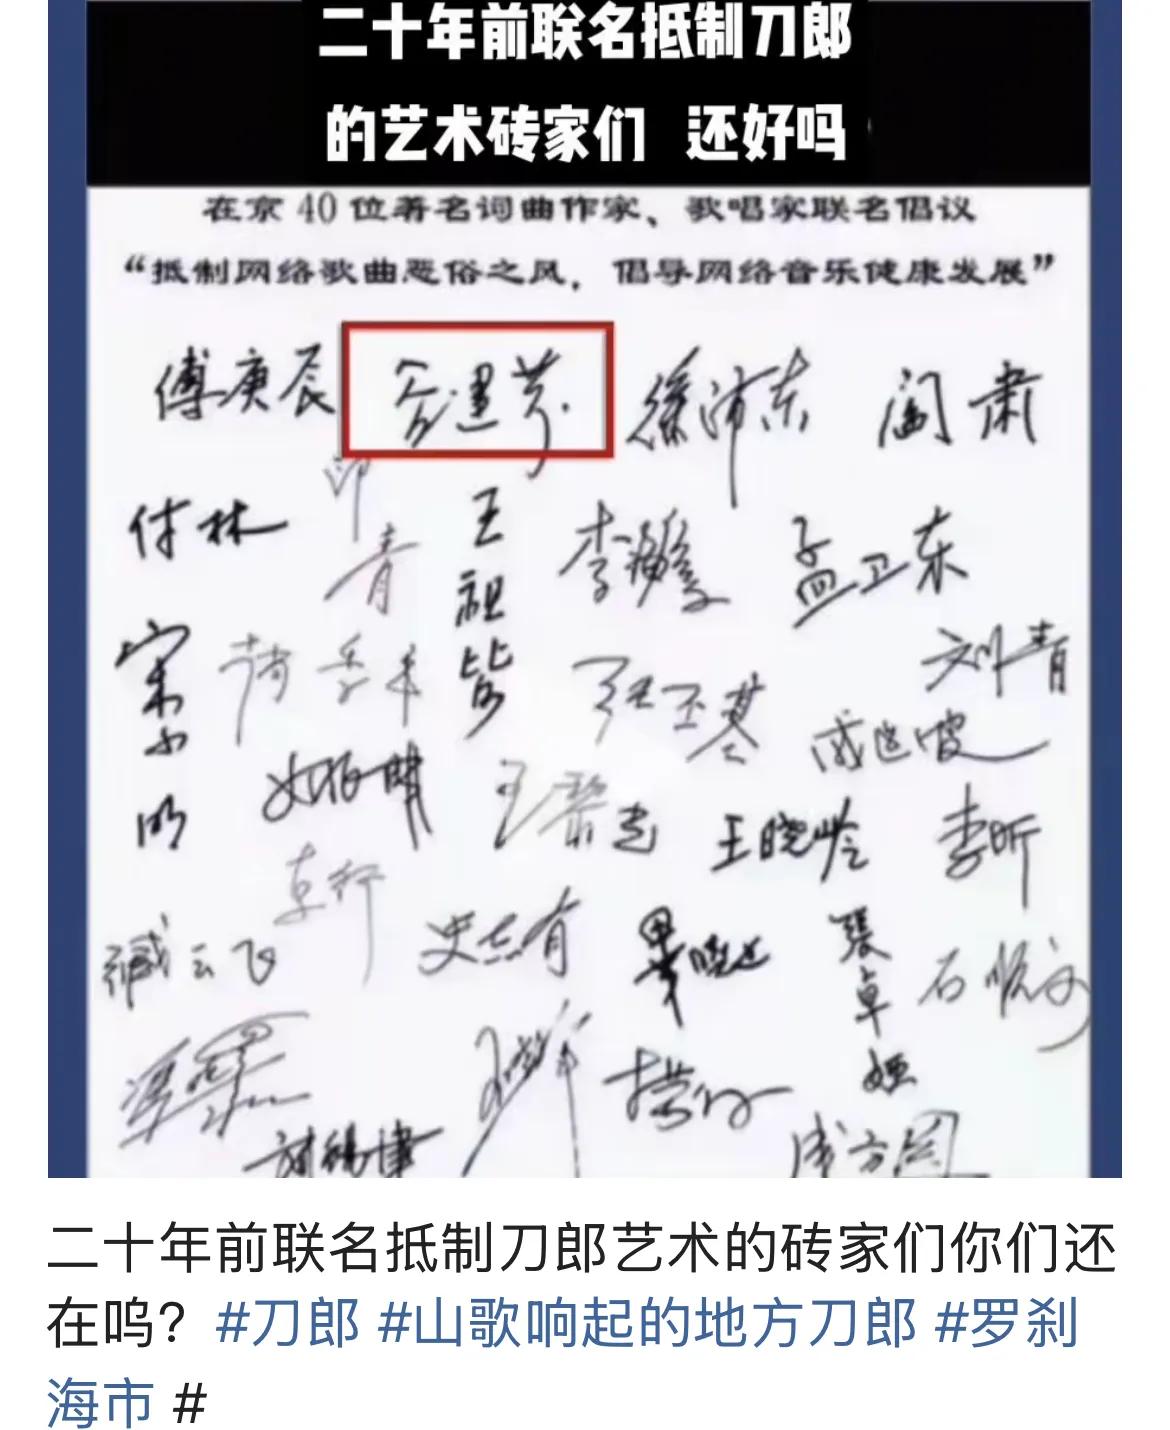 二十年前联名抵制刀郎
的艺术砖家们 还好吗
在京40位著名词曲作家、歌唱家联名倡议
“抵制网络歌曲恶俗之风，倡导网络音乐健康发展”
傅庚辰 谷建芬 徐沛东 阎肃
付林 印青 王祖皆 李海鹰 孟卫东
宋小明 刘青
王晓岭 李昕
臧云飞 张卓娅 石顺义
成方圆
二十年前联名抵制刀郎艺术的砖家们你们还
在呜？#刀郎 #山歌响起的地方刀郎 #罗刹
海市 #